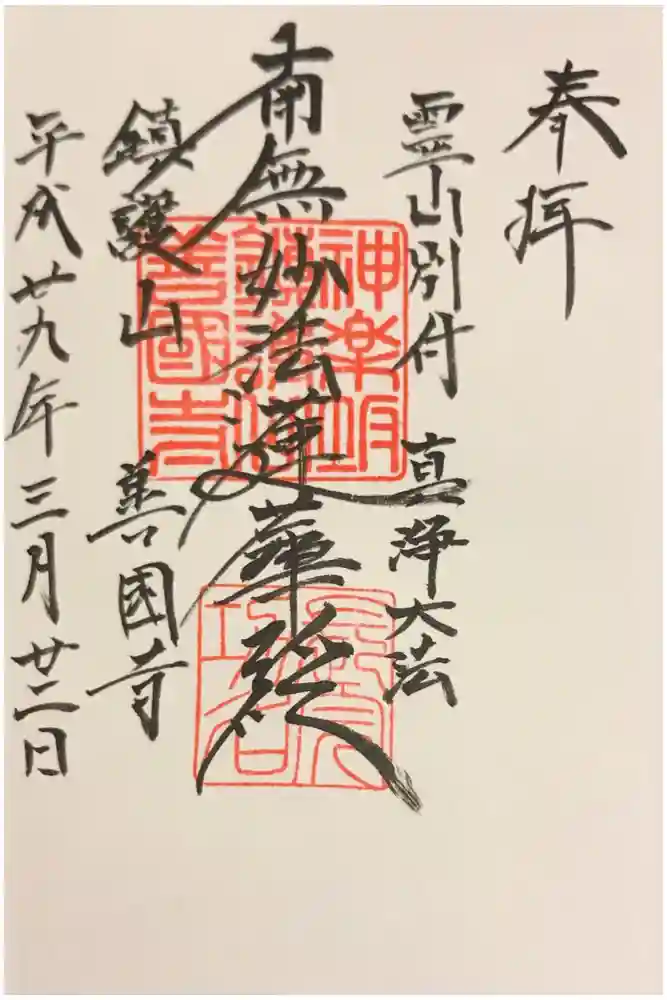 奉拝
霊山別付 真浄大法
南無妙法蓮華経
鎮護山 善國寺
平成廿九年三月廿二日
神楽坂
鎮護山
善國寺